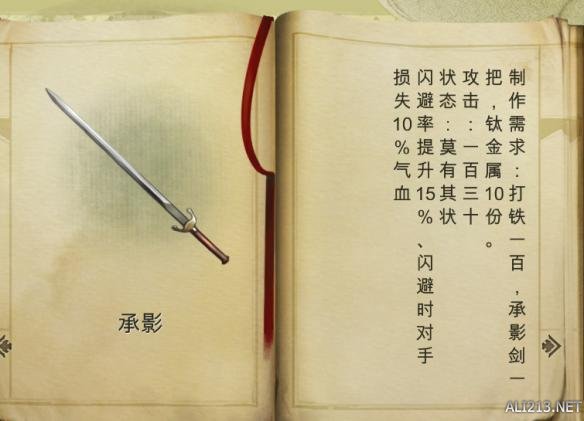 承影
制作需求：打铁一百，承影剑一
把，钛金属10份。
攻击：一百三十
状态：莫有其状
闪避率提升15%、闪避时对手
损失10%气血
ALI213.NET